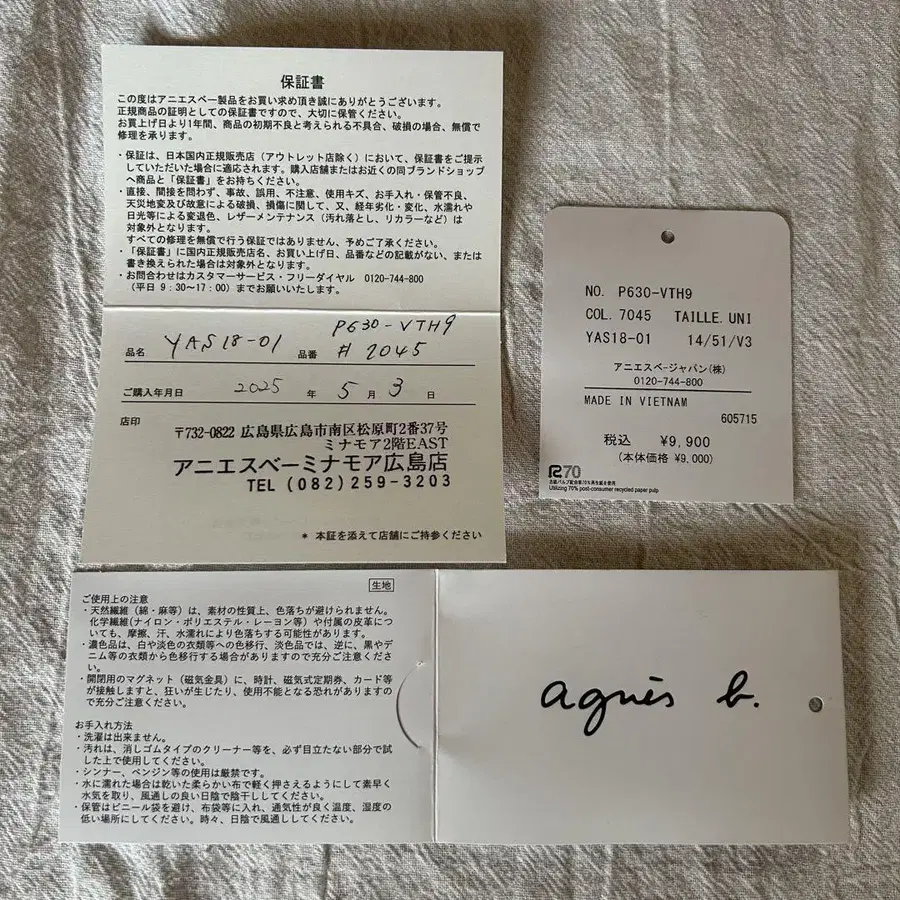 保証書
この度はアニエスベー製品をお買い求め頂き誠にありがとうございます。
正規商品の証明としての保証書ですので、大切に保管ください。
お買上げ日より1年間、商品の初期不良と考えられる不具合、破損の場合、無償で
修理を承ります。
・保証は、日本国内正規販売店（アウトレット店除く）において、保証書をご提示
していただいた場合に適応されます。購入店舗またはお近くの同ブランドショップ
へ商品と「保証書」をお持ちください。
・直接、間接を問わず、事故、誤用、不注意、使用キズ、お手入れ・保管不良、
天災地変及び故意による破損、損傷に関して、又、経年劣化・変化、水濡れや
日光等による変退色、レザーメンテナンス（汚れ落とし、リカラーなど）は
対象外となります。
すべての修理を無償で行う保証ではありません、予めご了承ください。
・「保証書」に国内正規販売店名、お買い上げ日、品番などの記載がない、または
書き換えられた場合は対象外となります。
・お問合わせはカスタマーサービス・フリーダイヤル 0120-744-800
（平日 9：30〜17：00）までお願いいたします。
品名 YAS18-01 品番 P630-VTH9
#7045
ご購入年月日 2025 年 5 月 3 日
店印
〒732-0822 広島県広島市南区松原町2番37号
ミナモア2階EAST
アニエスベーミナモア広島店
TEL (082)259-3203
* 本証を添えて店舗にご持参ください
NO. P630-VTH9
COL. 7045 TAILLE. UNI
YAS18-01 14/51/V3
アニエスベージャパン(株)
0120-744-800
MADE IN VIETNAM
605715
税込 ¥9,900
(本体価格 ¥9,000)
R70
古紙パルプ配合率70%再生紙を使用
Utilizing 70% post-consumer recycled paper pulp
生地
ご使用上の注意
・天然繊維（綿・麻等）は、素材の性質上、色落ちが避けられません。
化学繊維(ナイロン・ポリエステル・レーヨン等）や付属の皮革につ
いても、摩擦、汗、水濡れにより色落ちする可能性があります。
・濃色品は、白や淡色の衣類等への色移行、淡色品では、逆に、黒やデ
ニム等の衣類から色移行する場合がありますので充分ご注意くださ
い。
・開閉用のマグネット（磁気金具）に、時計、磁気式定期券、カード等
が接触しますと、狂いが生じたり、使用不能となる恐れがありますの
で充分ご注意ください。
お手入れ方法
・洗濯は出来ません。
・汚れは、消しゴムタイプのクリーナー等を、必ず目立たない部分で試
した上で使用してください。
・シンナー、ベンジン等の使用は厳禁です。
・水に濡れた場合は乾いた柔らかい布で軽く押さえるようにして素早く
水気を取り、風通しの良い日陰で陰干ししてください。
・保管はビニール袋を避け、布袋等に入れ、通気性が良く温度、湿度の
低い場所にしてください。時々、日陰で風通ししてください。
agnès b.